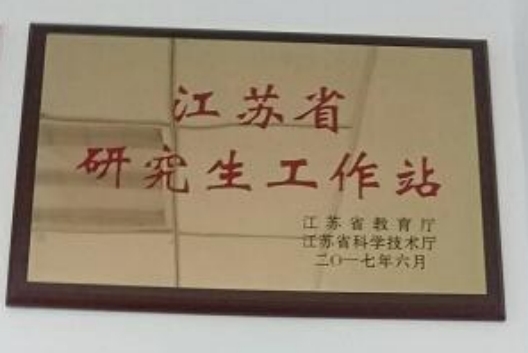 江苏省
研究生工作站
江苏省教育厅
江苏省科学技术厅
二〇一七年六月